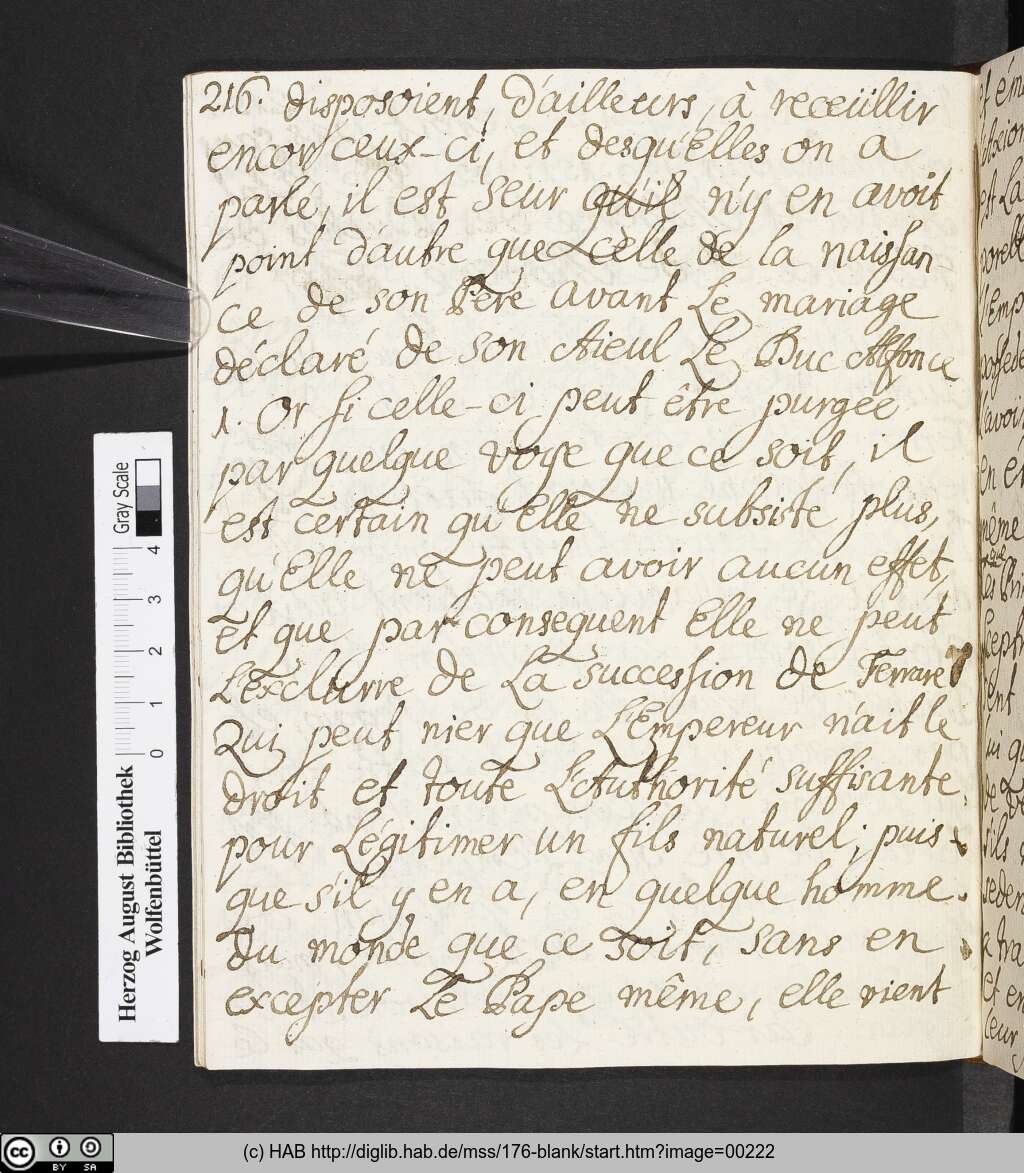 216. disposoient, d'ailleurs, à receüillir
encor ceux-ci, et desqu'elles on a
parlé, il est seur qu'il n'y en avoit
point d'autre que celle de la naissan-
ce de son Pere avant Le mariage
déclaré de son Aieul Le Duc Alfonce
1. Or si celle-ci peut être purgée
par quelque voye que ce soit, il
est certain qu'Elle ne subsiste plus,
qu'Elle ne peut avoir aucun effet,
et que par consequent Elle ne peut
L'exclurre de La succession de Ferrare
Qui peut nier que L'Empereur n'ait le
droit et toute L'Authorité suffisante
pour Légitimer un fils naturel; puis
que s'il y en a, en quelque homme
du monde que ce soit, sans en
excepter Le Pape même, elle vient
Gray Scale
0 1 2 3 4
Herzog August Bibliothek
Wolfenbüttel
cc BY SA
(c) HAB http://diglib.hab.de/mss/176-blank/start.htm?image=00222